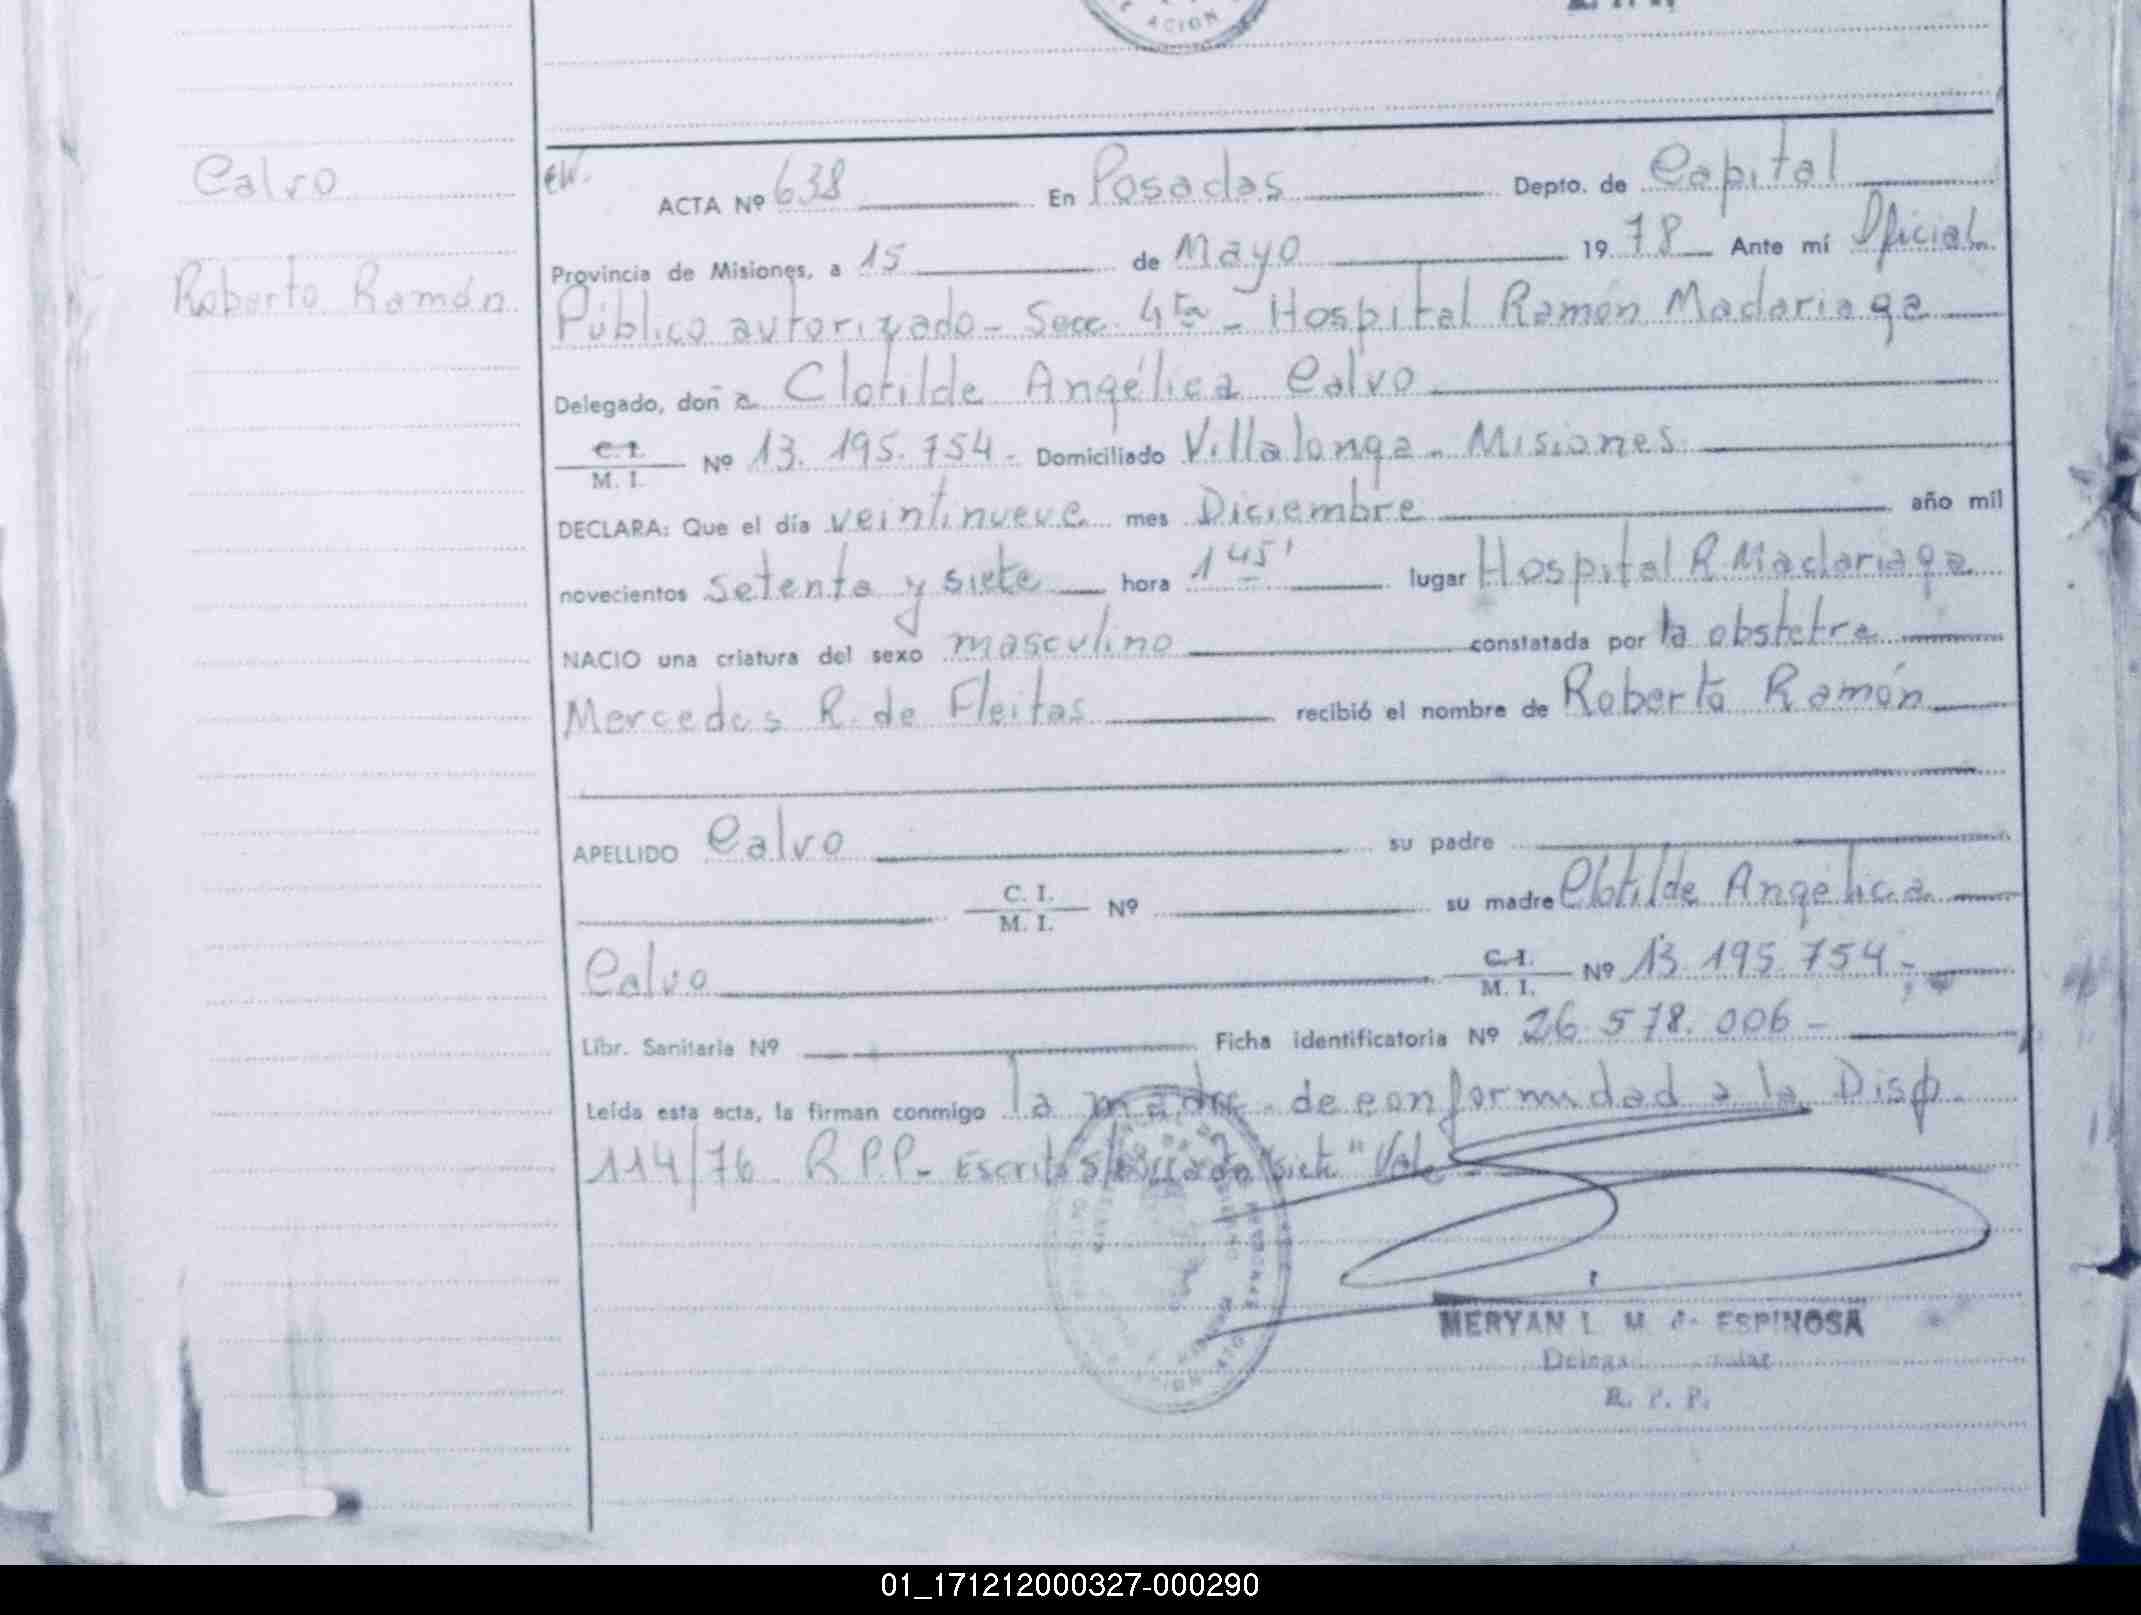 ACION
Calvo
Roberto Ramón
ACTA Nº 638 En Posadas Depto. de Capital
Provincia de Misiones, a 15 de Mayo 1978 Ante mí Oficial
Público autorizado - Secc. 4ta - Hospital Ramón Madariaga
Delegado, doña Clotilde Angélica Calvo
C. I.
M. I. Nº 13.195.754- Domiciliado Villalonga - Misiones
DECLARA: Que el día veintinueve mes Diciembre año mil
novecientos setenta y siete hora 1 45' lugar Hospital R. Madariaga
NACIO una criatura del sexo masculino constatada por la obstetra
Mercedes R. de Fleitas recibió el nombre de Roberto Ramón
APELLIDO Calvo su padre
C. I.
M. I. Nº su madre Clotilde Angélica
Calvo C. I.
M. I. Nº 13.195.754-
Libr. Sanitaria Nº Ficha identificatoria Nº 26.578.006-
Leída esta acta, la firman conmigo la madre - de conformidad a la Disp.
114/76 R.P.P.- Escrito s/ "siete" Vale
MERYAN L. M. ESPINOSA
R. P. P.
01_171212000327-000290